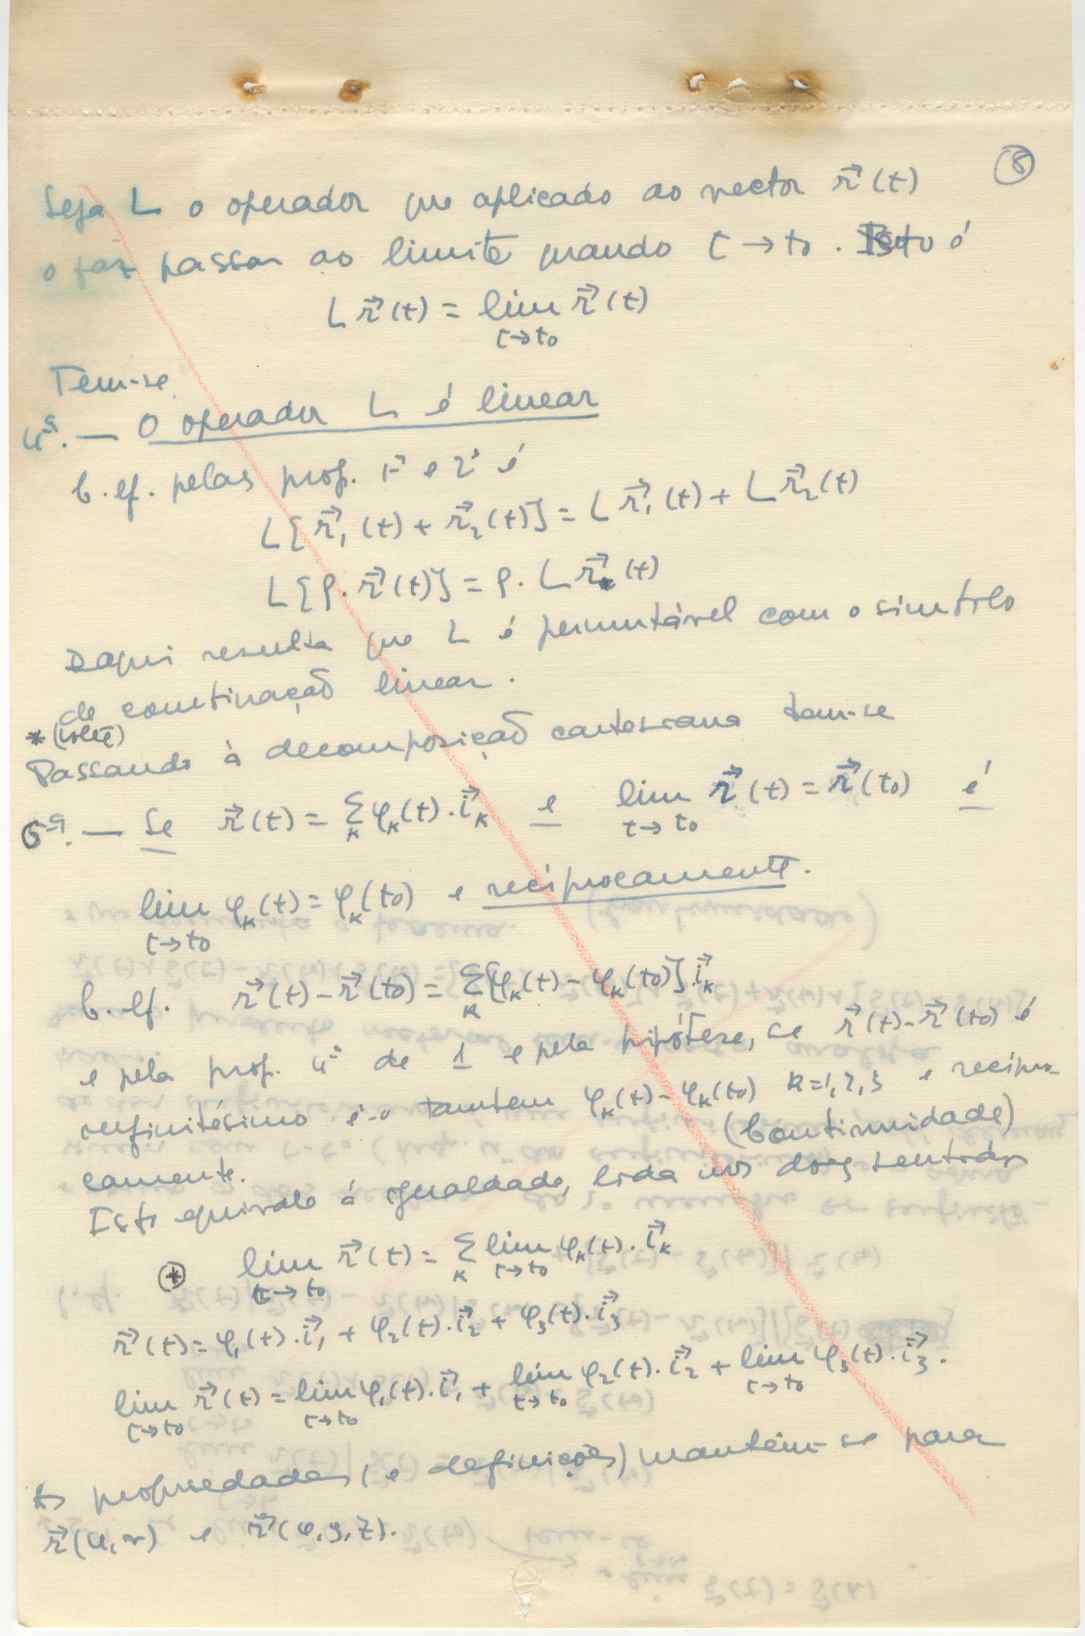 (8)
Seja L o operador que aplicado ao vector r⃗(t)
o faz passar ao limite quando t → t₀. Isto é
L r⃗(t) = lim r⃗(t)
t→t₀
Tem-se
4ª. — O operador L é linear
C. ef. pelas prop. 1ª e 2ª é
L[r⃗₁(t) + r⃗₂(t)] = L r⃗₁(t) + L r⃗₂(t)
L[ρ. r⃗(t)] = ρ. L r⃗(t)
Daqui resulta que L é permutável com o símbolo
de combinação linear.
* (volte)
Passando à decomposição cartesiana tem-se
5ª. — Se r⃗(t) = Σ φₖ(t). i⃗ₖ e lim r⃗(t) = r⃗(t₀) é
k t→t₀
lim φₖ(t) = φₖ(t₀) e reciprocamente.
t→t₀
C. ef. r⃗(t) – r⃗(t₀) = Σ[φₖ(t) – φₖ(t₀)] i⃗ₖ
k
e pela prop. 4ª de 1 e pela hipótese, se r⃗(t) – r⃗(t₀) é
infinitésimo é-o também φₖ(t) – φₖ(t₀) k=1,2,3 e recipro-
camente. (Continuidade)
Isto equivale à igualdade, lida nos dois sentidos
(*) lim r⃗(t) = Σ lim φₖ(t). i⃗ₖ
t→t₀ k t→t₀
r⃗(t) = φ₁(t). i⃗₁ + φ₂(t). i⃗₂ + φ₃(t). i⃗₃
lim r⃗(t) = lim φ₁(t). i⃗₁ + lim φ₂(t). i⃗₂ + lim φ₃(t). i⃗₃.
t→t₀ t→t₀ t→t₀ t→t₀
As propriedades (e definições) mantêm-se para
r⃗(u,v) e r⃗(